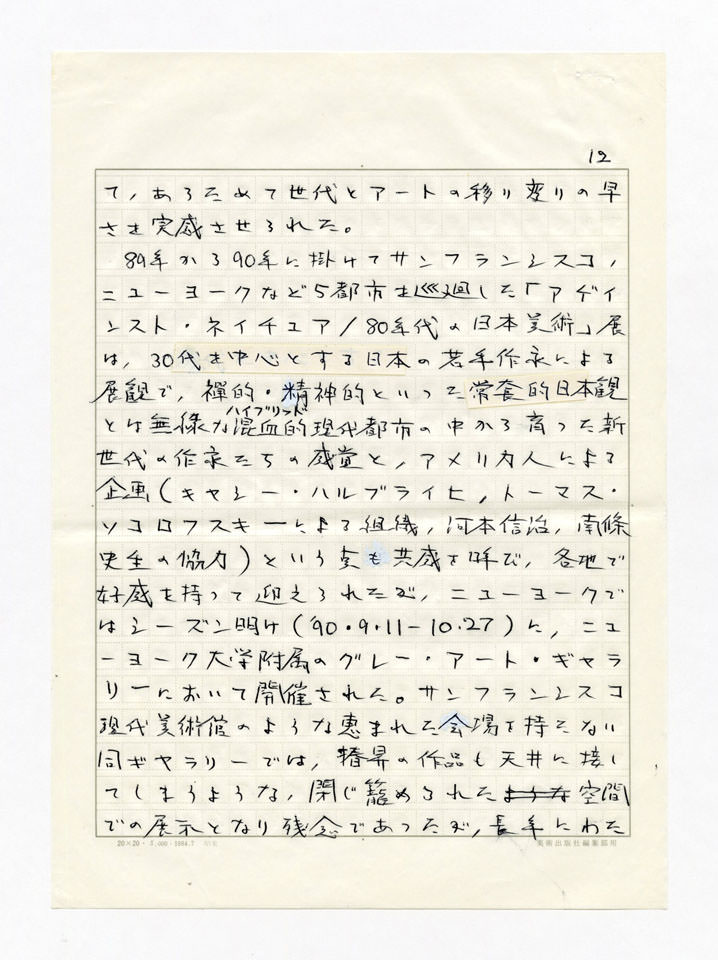 12
て，あらためて世代とアートの移り変りの早
さを実感させられた。
89年から90年に掛けてサンフランシスコ，
ニューヨークなど5都市を巡廻した「アゲイ
ンスト・ネイチュア/80年代の日本美術」展
は，30代を中心とする日本の若手作家による
展観で，禅的・精神的といった常套的日本観
ハイブリッド
とは無縁な混血的現代都市の中から育った新
世代の作家たちの感覚と，アメリカ人による
企画(キャシー・ハルブライヒ，トーマス・
ソコロフスキーによる組織，河本信治，南條
史生の協力)という点も共感を呼び，各地で
好感を持って迎えられたが，ニューヨークで
はシーズン明け(90・9・11－10・27)に，ニュ
ーヨーク大学附属のグレー・アート・ギャラ
リーにおいて開催された。サンフランシスコ
現代美術館のような恵まれた会場を持たない
同ギャラリーでは，椿昇の作品も天井に接し
てしまうような，閉じ籠められたような空間
での展示となり残念であったが，長年にわた
20×20・5,000・1984.7
美術出版社編集部用